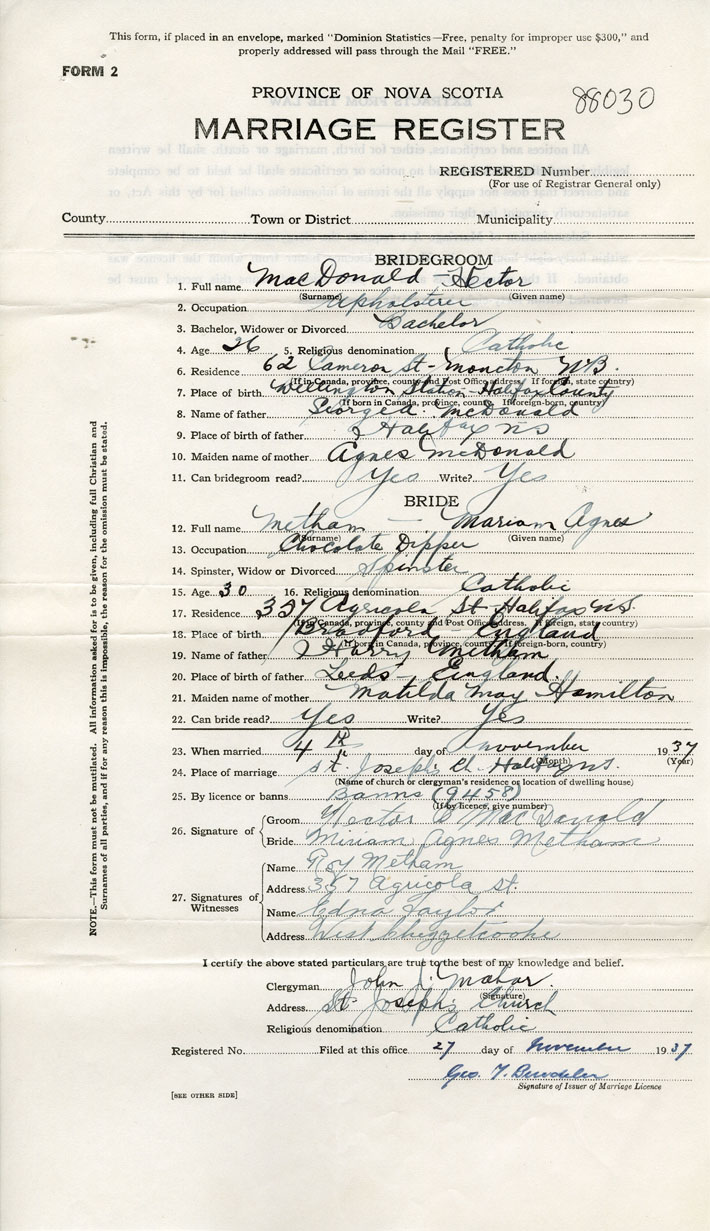 This form, if placed in an envelope, marked "Dominion Statistics—Free, penalty for improper use $300," and
properly addressed will pass through the Mail "FREE."
FORM 2
PROVINCE OF NOVA SCOTIA
88030
MARRIAGE REGISTER
REGISTERED Number
(For use of Registrar General only)
County Town or District Municipality
BRIDEGROOM
1. Full name MacDonald - Hector
(Surname) (Given name)
2. Occupation Upholsterer
3. Bachelor, Widower or Divorced Bachelor
4. Age 26 5. Religious denomination Catholic
6. Residence 62 Cameron St - Moncton N.B.
(If in Canada, province, county and Post Office address. If foreign, state country)
7. Place of birth Wellington Station Halifax County
(If born in Canada, province, county. If foreign-born, country)
8. Name of father George A. McDonald
9. Place of birth of father Halifax NS
10. Maiden name of mother Agnes McDonald
11. Can bridegroom read? Yes Write? Yes
BRIDE
12. Full name Metham - Mariam Agnes
(Surname) (Given name)
13. Occupation Chocolate Dipper
14. Spinster, Widow or Divorced Spinster
15. Age 30 16. Religious denomination Catholic
17. Residence 357 Agricola St Halifax NS.
(If in Canada, province, county and Post Office address. If foreign, state country)
18. Place of birth Bradford England
(If born in Canada, province, county. If foreign-born, country)
19. Name of father Harry Metham
20. Place of birth of father Leeds - England.
21. Maiden name of mother Matilda May Hamilton
22. Can bride read? Yes Write? Yes
23. When married 4th day of November 1937
(Month) (Year)
24. Place of marriage St. Joseph's Ch. Halifax NS.
(Name of church or clergyman's residence or location of dwelling house)
25. By licence or banns Banns (9458)
(If by licence, give number)
26. Signature of Groom Hector MacDonald
Bride Miriam Agnes Metham
27. Signatures of Witnesses
Name Roy Metham
Address 357 Agricola St.
Name Edna Taylor
Address West Chezzetcooke
I certify the above stated particulars are true to the best of my knowledge and belief.
Clergyman John J. Mahar.
(Signature)
Address St. Joseph's Church
Religious denomination Catholic
Registered No. Filed at this office 27 day of November 1937
Geo. T.
Signature of Issuer of Marriage Licence
[SEE OTHER SIDE]
NOTE.—This form must not be mutilated. All information asked for is to be given, including full Christian and
Surnames of all parties, and if for any reason this is impossible, the reason for the omission must be stated.